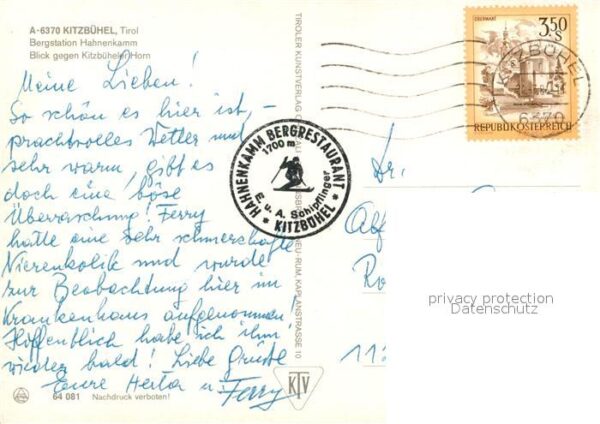 A-6370 KITZBÜHEL, Tirol
Bergstation Hahnenkamm
Blick gegen Kitzbüheler Horn
Meine Lieben!
So schön es hier ist, –
prachtvolles Wetter und
sehr warm, gibt es
doch eine böse
Überraschung! Ferry
hatte eine sehr schmerzhafte
Nierenkolik und wurde
zur Beobachtung hier im
Krankenhaus aufgenommen!
Hoffentlich habe ich ihn
wieder bald! Liebe Grüße
Eure Herta u. Ferry
64 081 Nachdruck verboten!
TIROLER KUNSTVERLAG
NEU-RUM, KAPLANSTRASSE 10
KTV
HAHNENKAMM BERGRESTAURANT
1700 m
E. u. A. Schipflinger
* KITZBÜHEL *
OBERWART
3.50
S
REPUBLIK ÖSTERREICH
KITZBÜHEL
6370
Dr.
Alf
Ro
112
privacy protection
Datenschutz